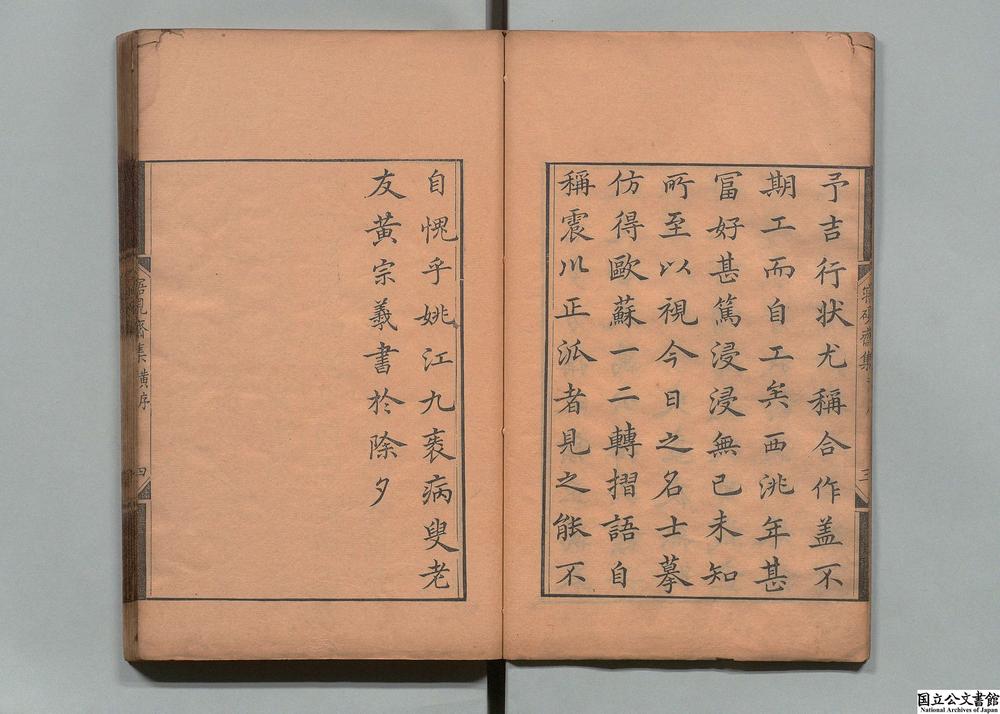 予吉行状尤稱合作盖不
期工而自工矣西洮年甚
冨好甚篤浸浸無已未知
所至以視今日之名士摹
仿得歐蘇一二轉摺語自
稱震川正派者見之能不
自愧乎姚江九袠病叟老
友黃宗羲書於除夕
集 黃序
四
集
三
国立公文書館
National Archives of Japan